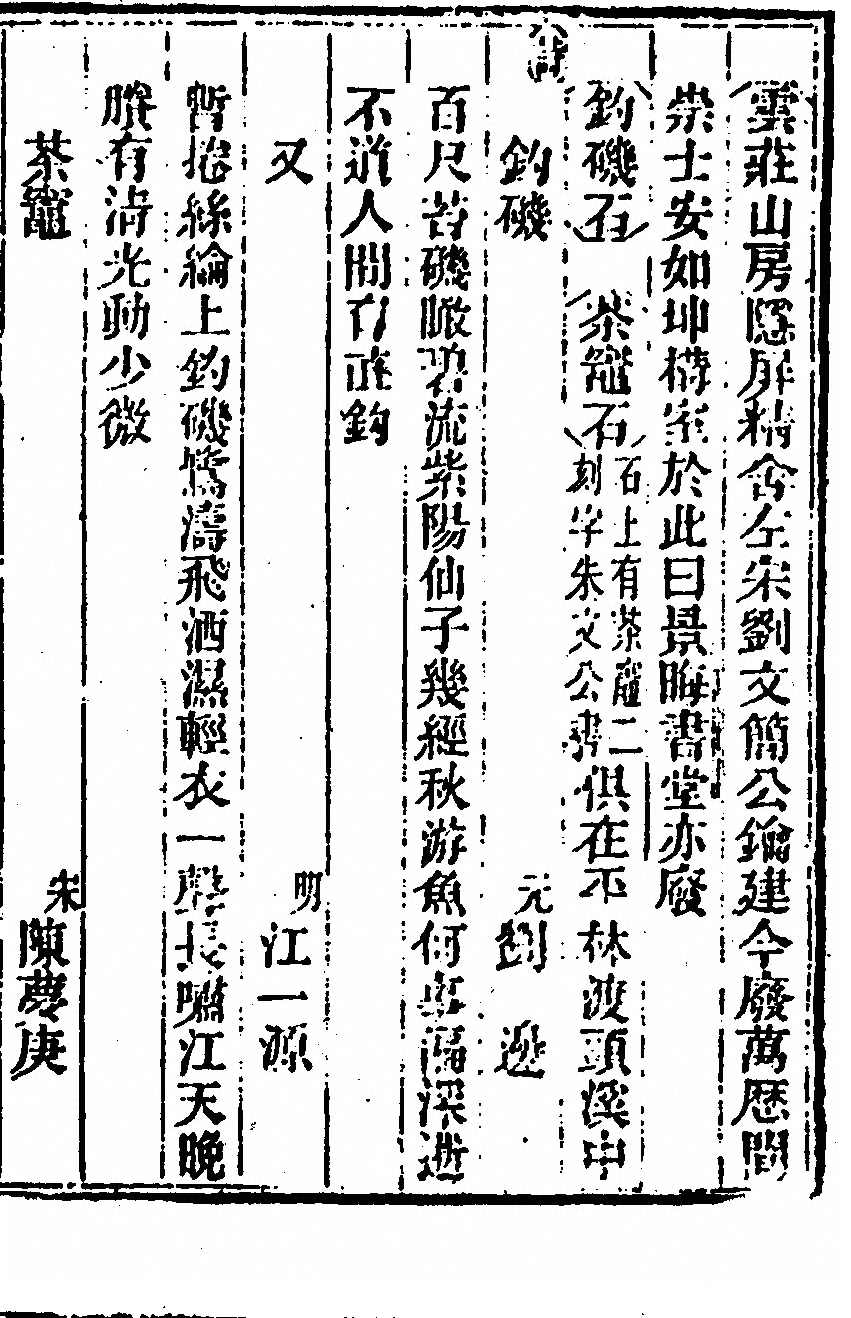 雲莊山房隱屏精舍左宋劉文簡公鑰建今廢萬歷間
崇士安如坤構室於此曰景晦書堂亦廢
釣磯石　茶竈石石上有茶竈二刻字朱文公書俱在平林渡頭溪中
詩
釣磯　元劉　遜
百尺苔磯瞰碧流紫陽仙子幾經秋游魚何事潛深逝
不道人間有直鈎
又　明江一源
暫捲絲綸上釣磯驚濤飛洒濕輕衣一聲長嘯江天晚
賸有清光動少微
茶竈　宋陳夢庚